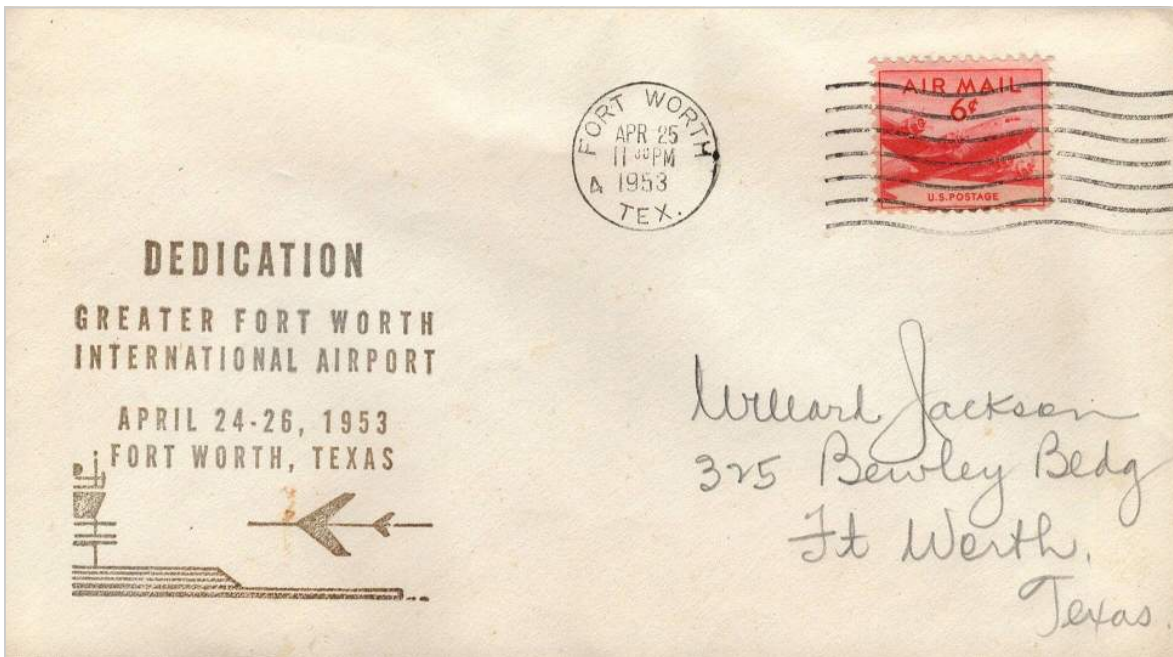 FORT WORTH
APR 25
11 30 PM
1953
4
TEX.
AIR MAIL
6¢
U.S. POSTAGE
DEDICATION
GREATER FORT WORTH
INTERNATIONAL AIRPORT
APRIL 24-26, 1953
FORT WORTH, TEXAS
Willard Jackson
325 Bewley Bldg
Ft Worth.
Texas.